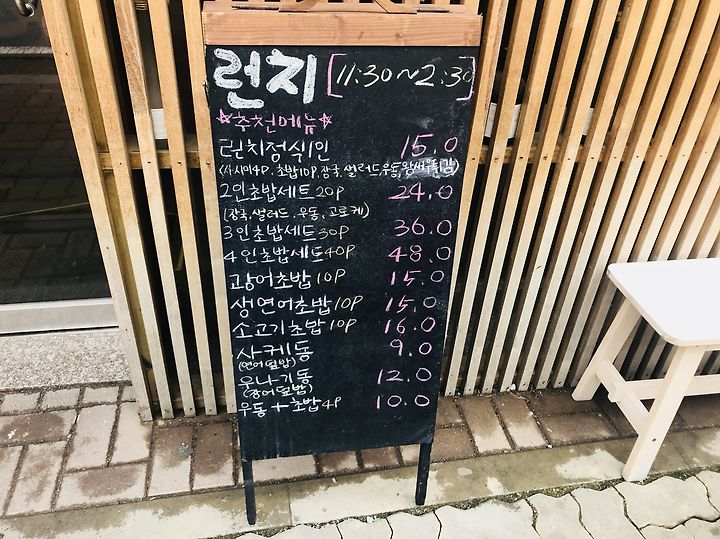 런치 [11:30~2:30]
☆추천메뉴☆
런치정식1인 15.0
(사시미4P, 초밥10P, 장국, 샐러드, 우동, 왕새우튀김)
2인초밥세트20P 24.0
(장국, 샐러드, 우동, 고로케)
3인초밥세트30P 36.0
4인초밥세트40P 48.0
광어초밥10P 15.0
생연어초밥10P 15.0
소고기초밥10P 16.0
사케동 9.0
(연어덮밥)
우나기동 12.0
(장어덮밥)
우동+초밥4P 10.0